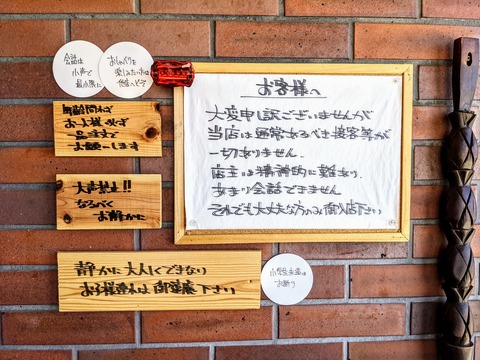 会話は
小声で
最小限に
おしゃべりを
楽しみたい方は
他店へどうぞ
年齢問わず
お一人様必ず
一品注文で
お願いします
大声禁止!!
なるべく
お静かに
静かに大人しくできない
お子様連れは御遠慮下さい
お客様へ
大変申し訳ございませんが
当店は通常あるべき接客等が
一切ありません.
店主は精神的に難あり、
あまり会話できません
それでも大丈夫な方のみ御入店下さい
小学生未満は
お断り